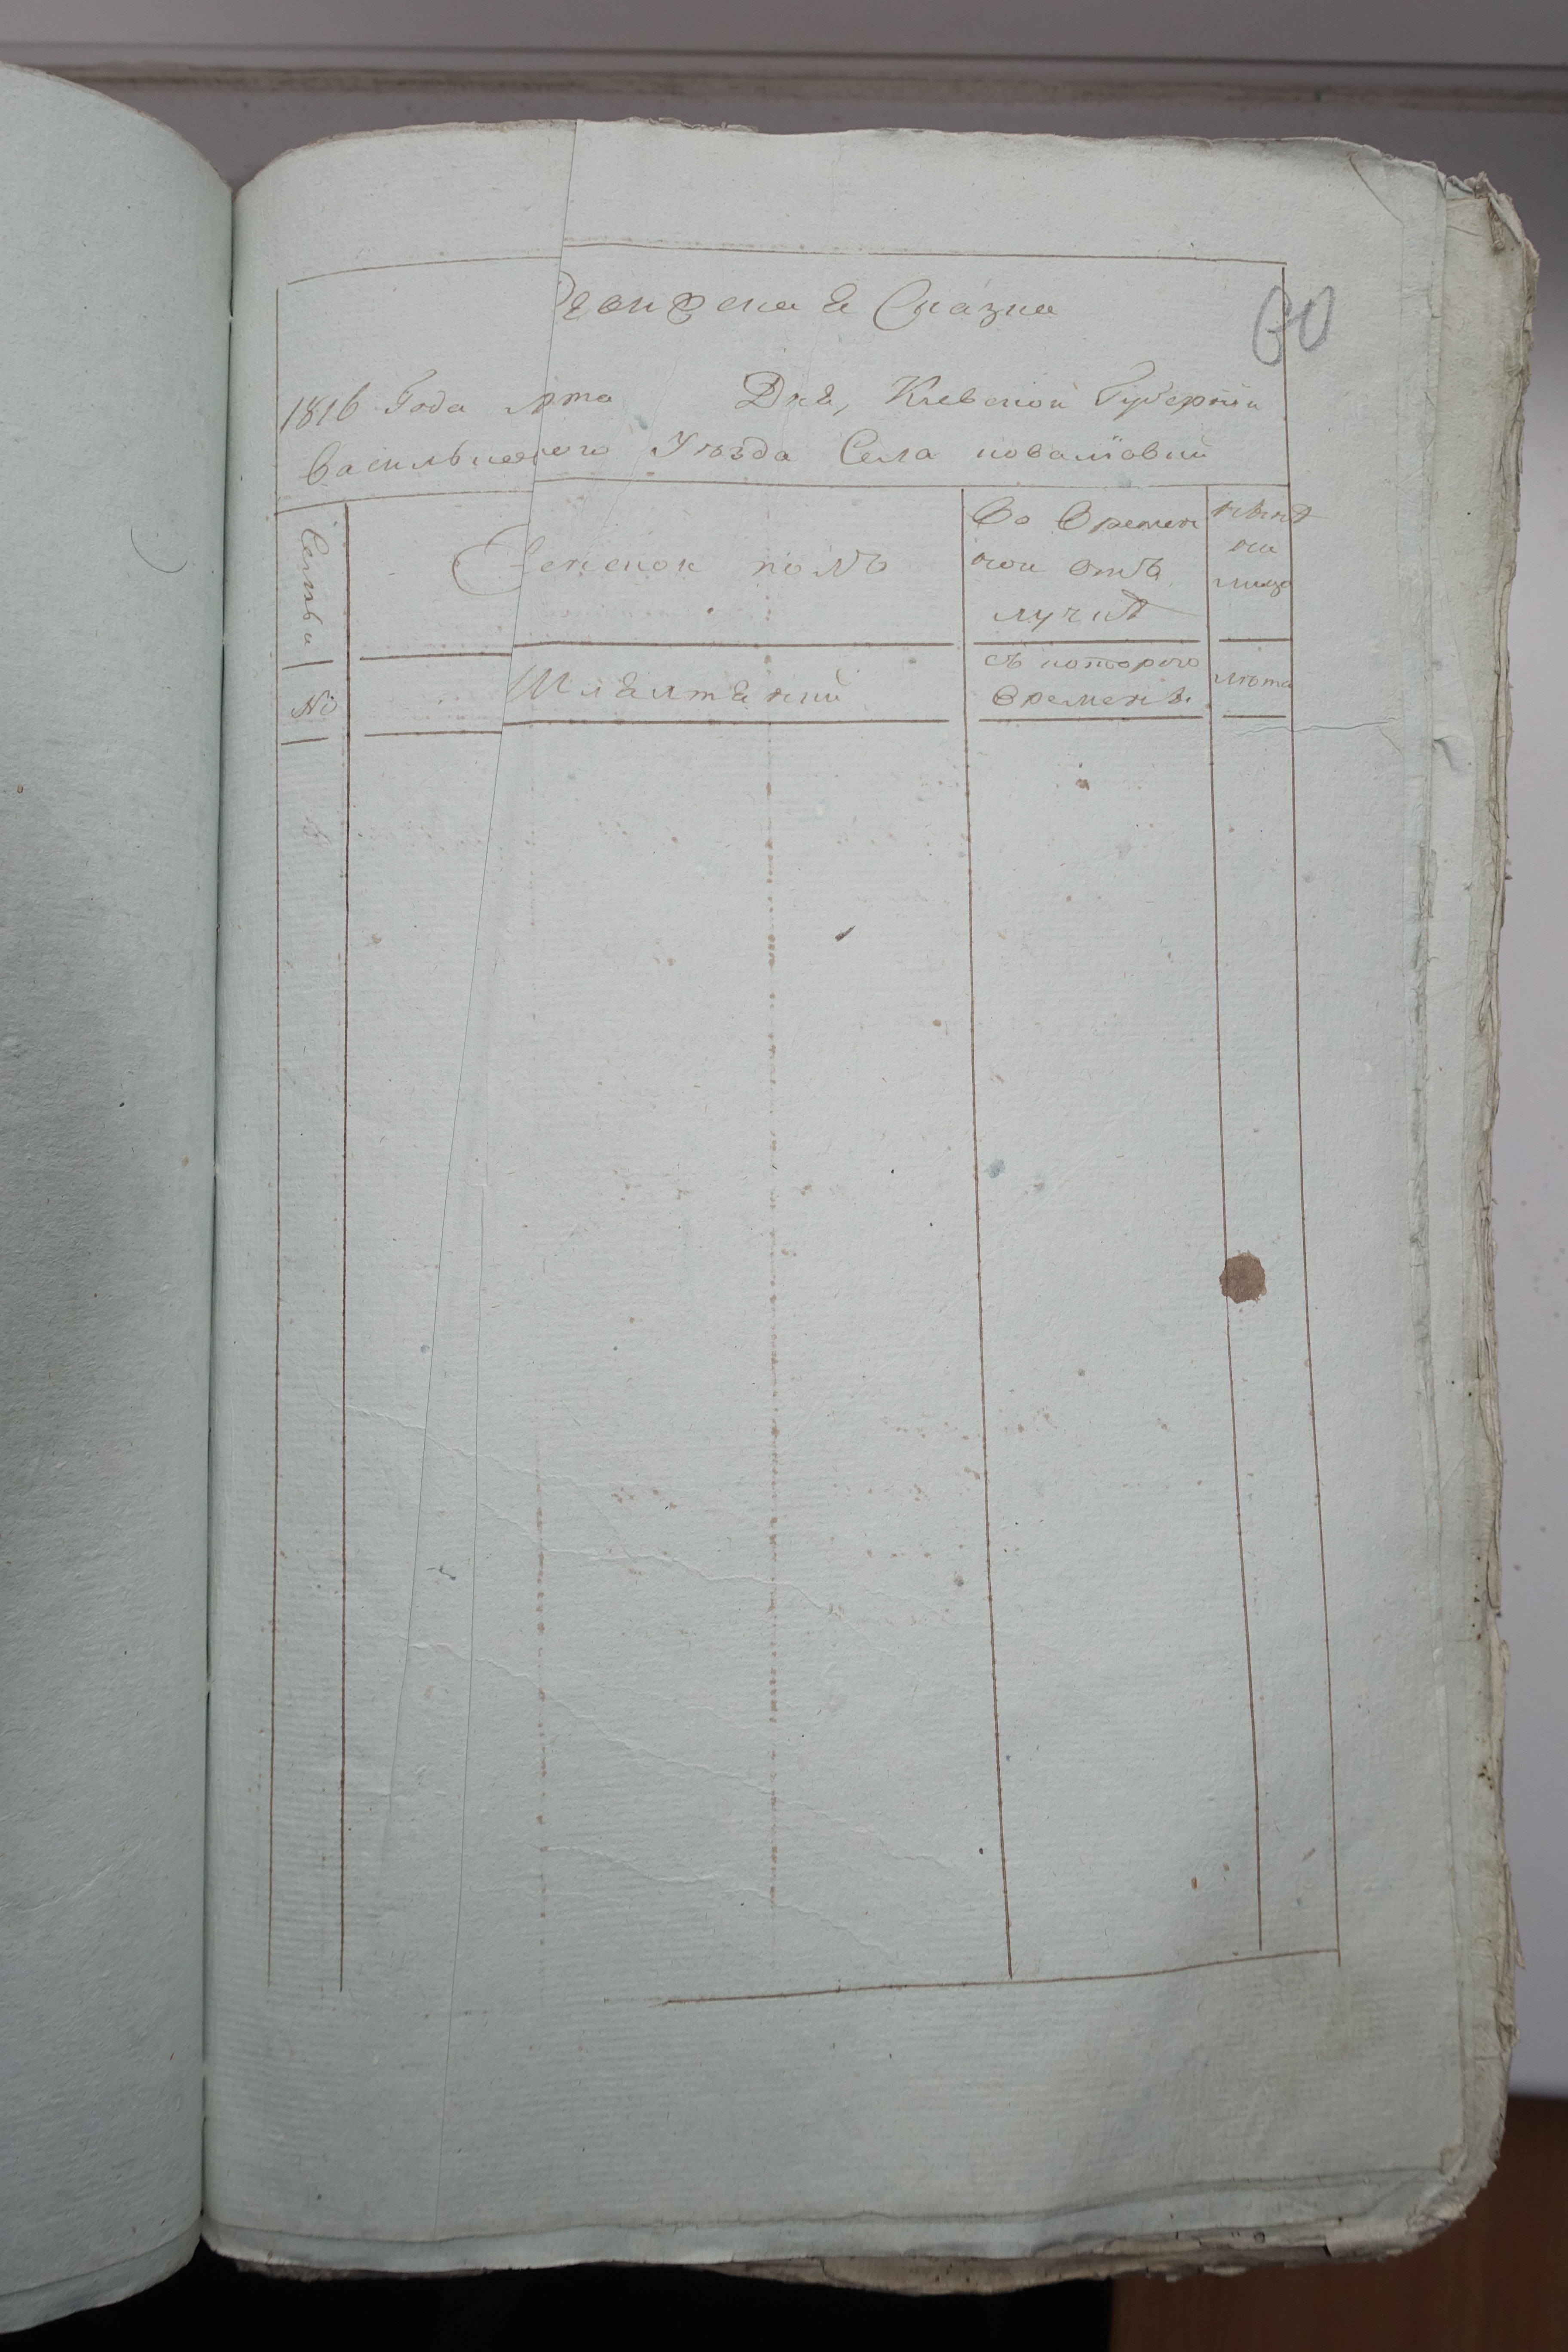 Ревизская Сказка
60
1816 Года мта Дня, Киевской Губернїи
Васильковского Уѣзда Села ковалївки
Семьи
Женской полъ
Во времен
ной отъ
лучкѣ
нынѣ
на
лицо
№
Шляхтянки
съ которого
времени.
лѣта